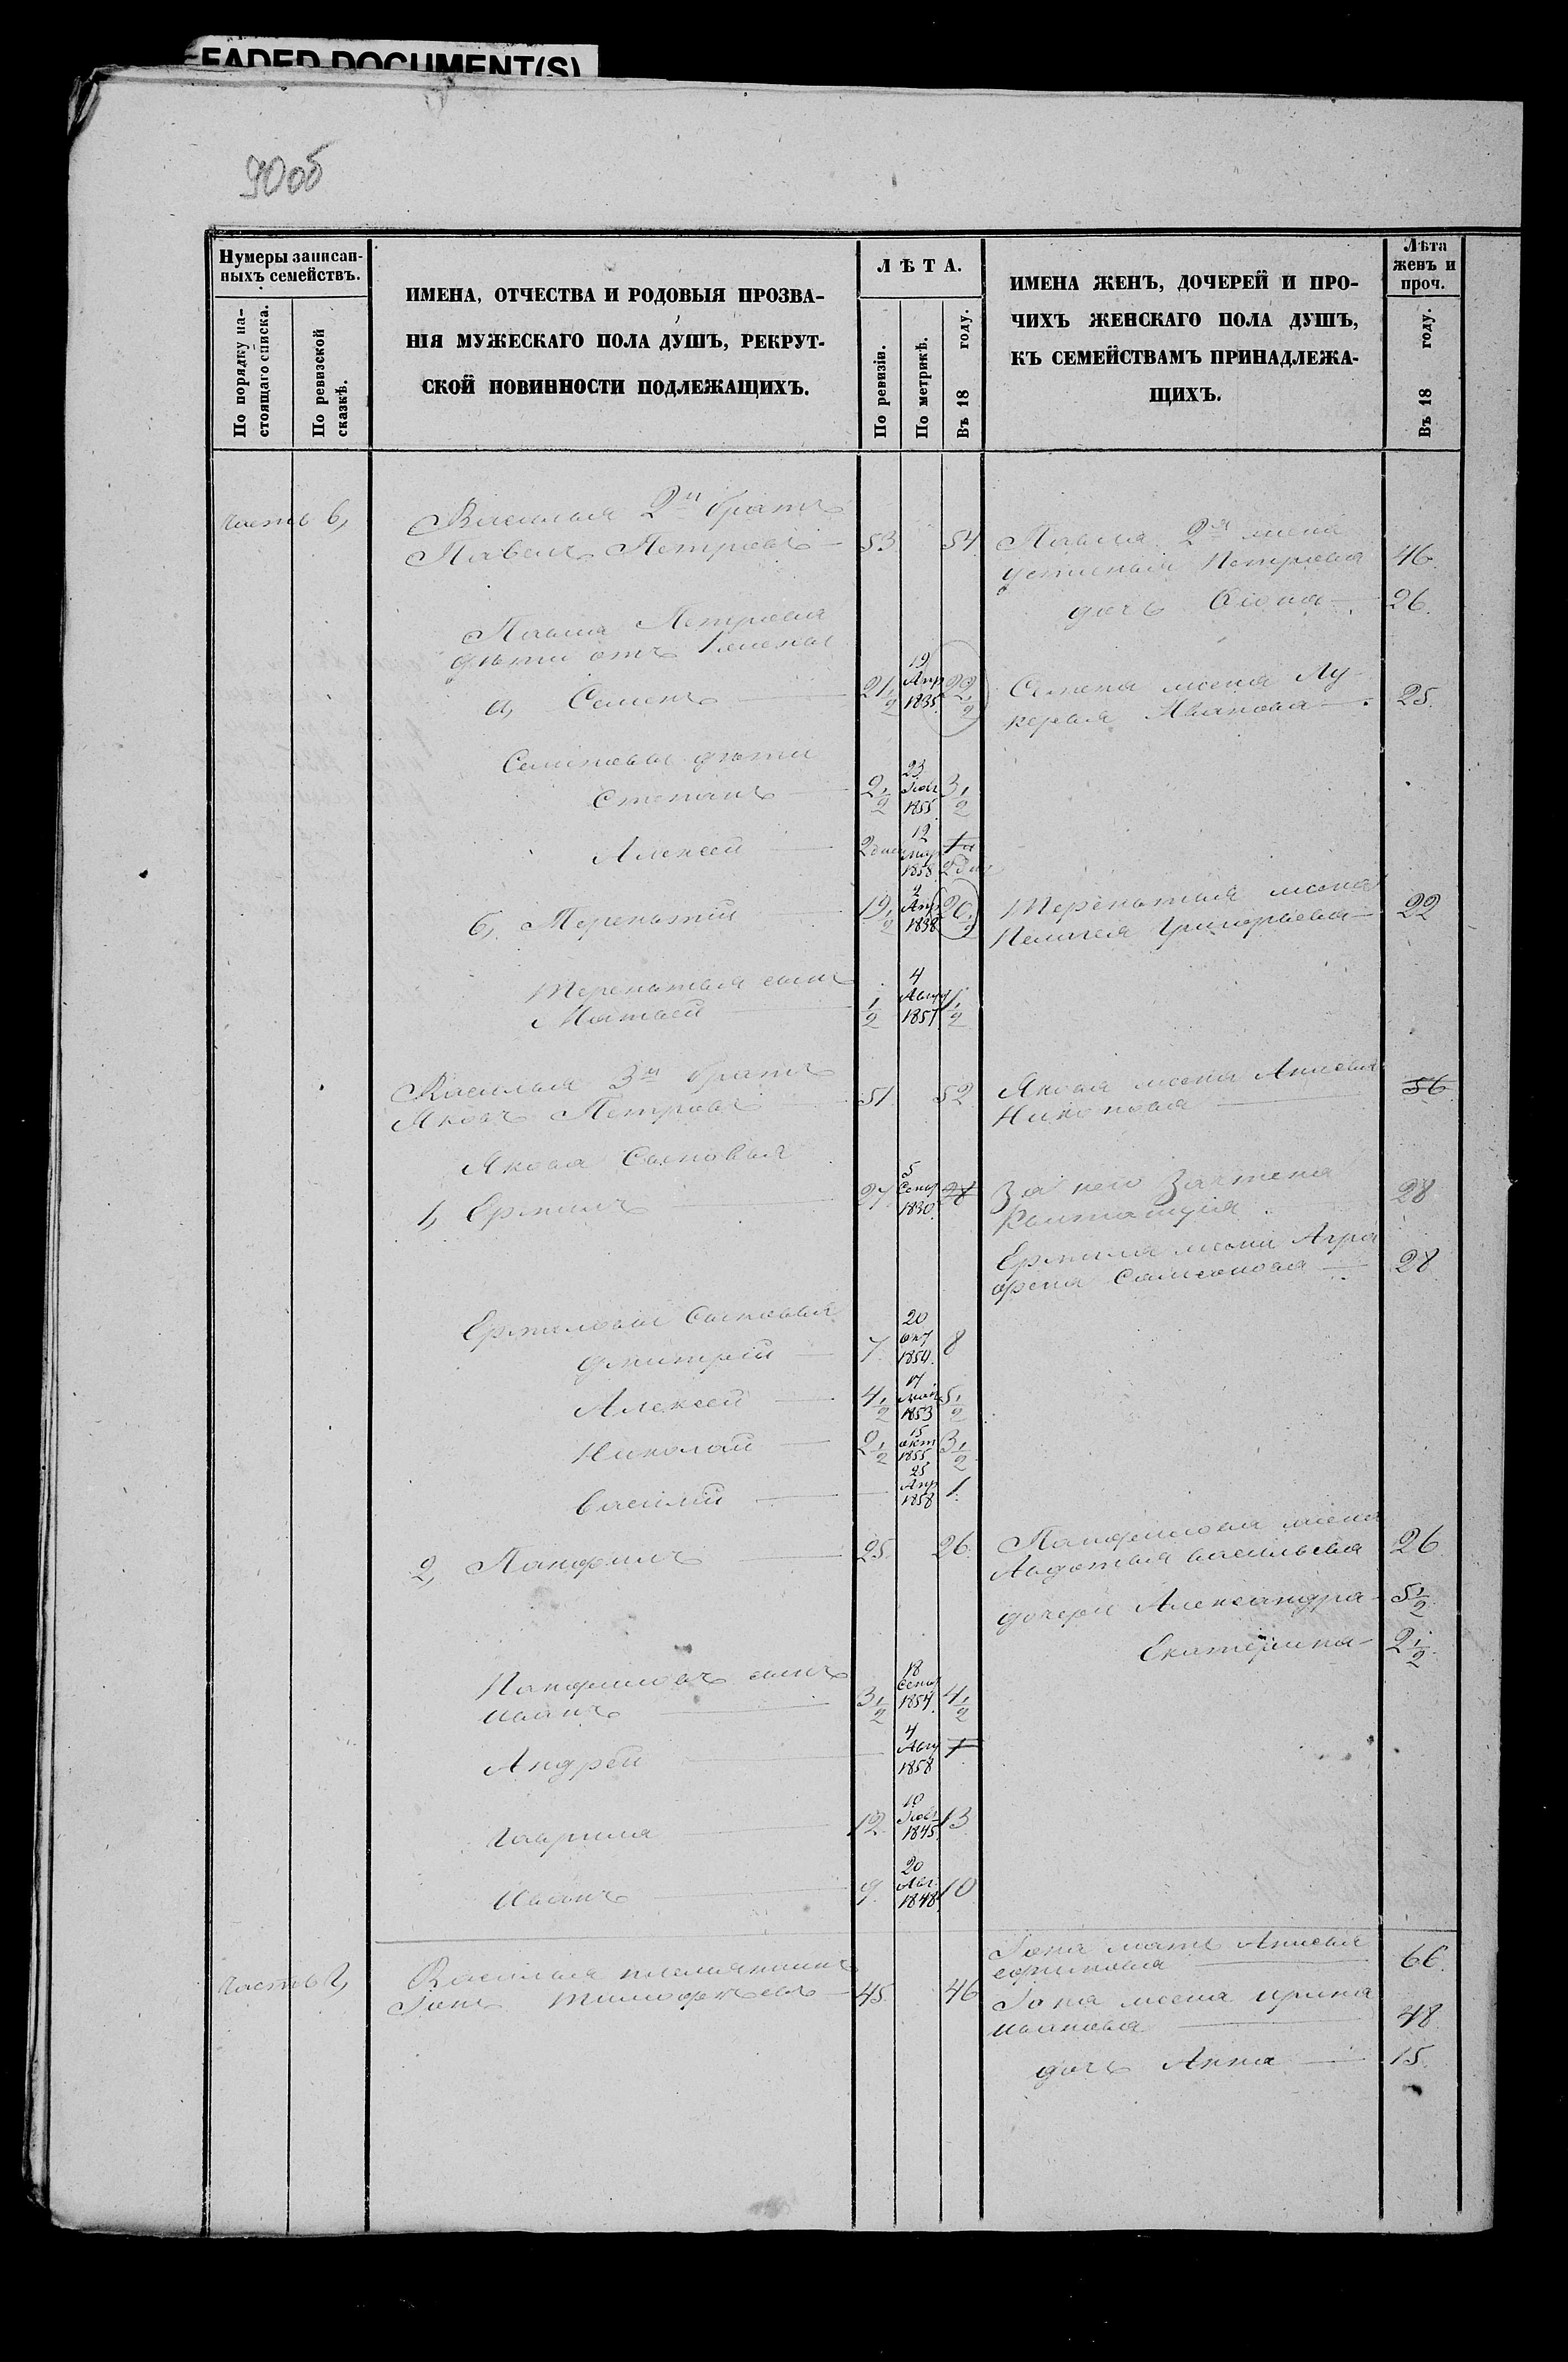 FADED DOCUMENT(S)
90об
Нумеры записан-
ныхъ семействъ.
По порядку на-
стоящаго списка.
По ревизской
сказкѣ.
ИМЕНА, ОТЧЕСТВА И РОДОВЫЯ ПРОЗВА-
НІЯ МУЖЕСКАГО ПОЛА ДУШЪ, РЕКРУТ-
СКОЙ ПОВИННОСТИ ПОДЛЕЖАЩИХЪ.
ЛѢТА.
По ревизіи.
По метрикѣ.
Въ 18 году.
ИМЕНА ЖЕНЪ, ДОЧЕРЕЙ И ПРО-
ЧИХЪ ЖЕНСКАГО ПОЛА ДУШЪ,
КЪ СЕМЕЙСТВАМЪ ПРИНАДЛЕЖА-
ЩИХЪ.
Лѣта
женъ и
проч.
Въ 18 году.
часть б,
Василья 2й братъ
Павелъ Петровъ 53 54
Павла 2я жена
Устинья Петрова 46
дочь 26
Павла Петрова
дѣти отъ 1 жены
а, Семенъ 21 1/2 19 Апр 1835 22 1/2
Семена жена Лу-
керья Иванова 25
Семеновы дѣти
Степанъ 2 1/2 23 1855 3 1/2
Алексей 2 дней 12 1858 2 дня
б, Терентій 19 1/2 2 Апр 1838 20 1/2
Терентья жена
Пелагея Григорьева 22
Терентья сынъ
Матвей 1/2 4 Авгу 1857 1 1/2
Василья 3й братъ
Яковъ Петровъ 51 52
Якова жена Анисья
Никонова 56
Якова Сыновья
1, Ермилъ 27 5 Сент 1830 28
За него Зачтена
Квитанція 28
Ермила жена Агра
фена Самсонова 28
Ермиловы Сыновья
Дмитрій 7 20 окт 1854 8
Алексей 4 1/2 17 Май 1853 5 1/2
Николай 2 1/2 15 окт 1855 3 1/2
Василій 25 Апр 1858 1
2, Панфилъ 25 26
Панфилова жена
Авдотья Васильева 26
дочери Александра 5 1/2
Екатерина 2 1/2
Панфиловъ сынъ
Иванъ 3 1/2 18 Сент 1854 4 1/2
Андрей 4 Авгу 1858 1
Гаврила 12 10 1845 13
Иванъ 9 20 Авг 1848 10
часть 2,
Василья племянникъ
Іонъ Тимофѣевъ 45 46
Іона мать Анисья
Ефимова 66
Іона жена Ирина
Иванова 48
дочь Анна 15